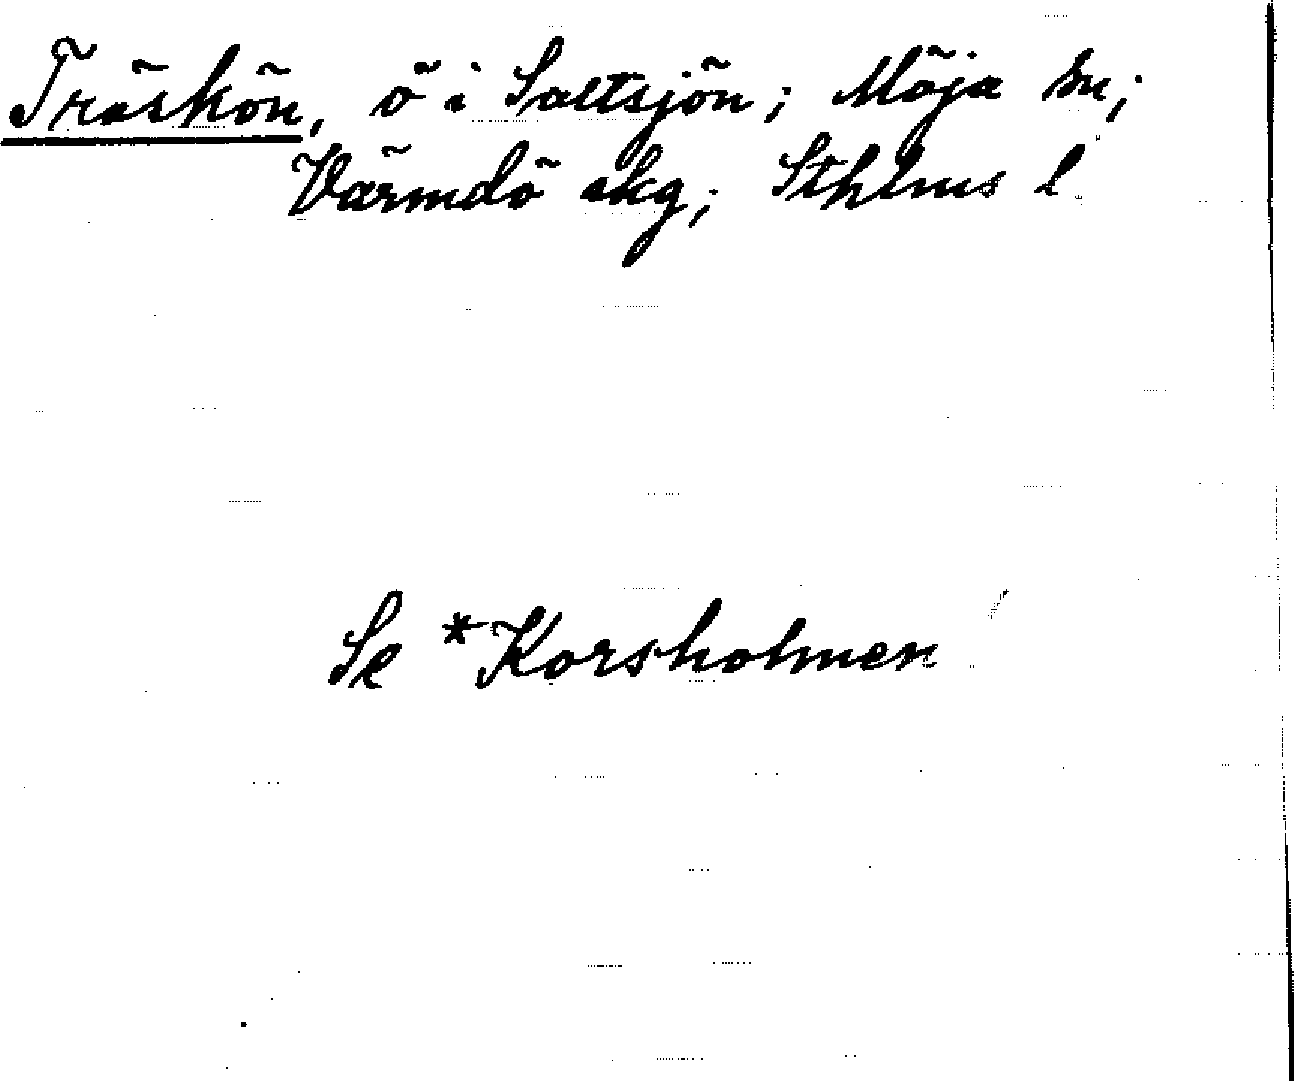 Träskön, ö i Saltsjön; Möja sn;
Värmdö skg; Sthlms l
Se *Korsholmen